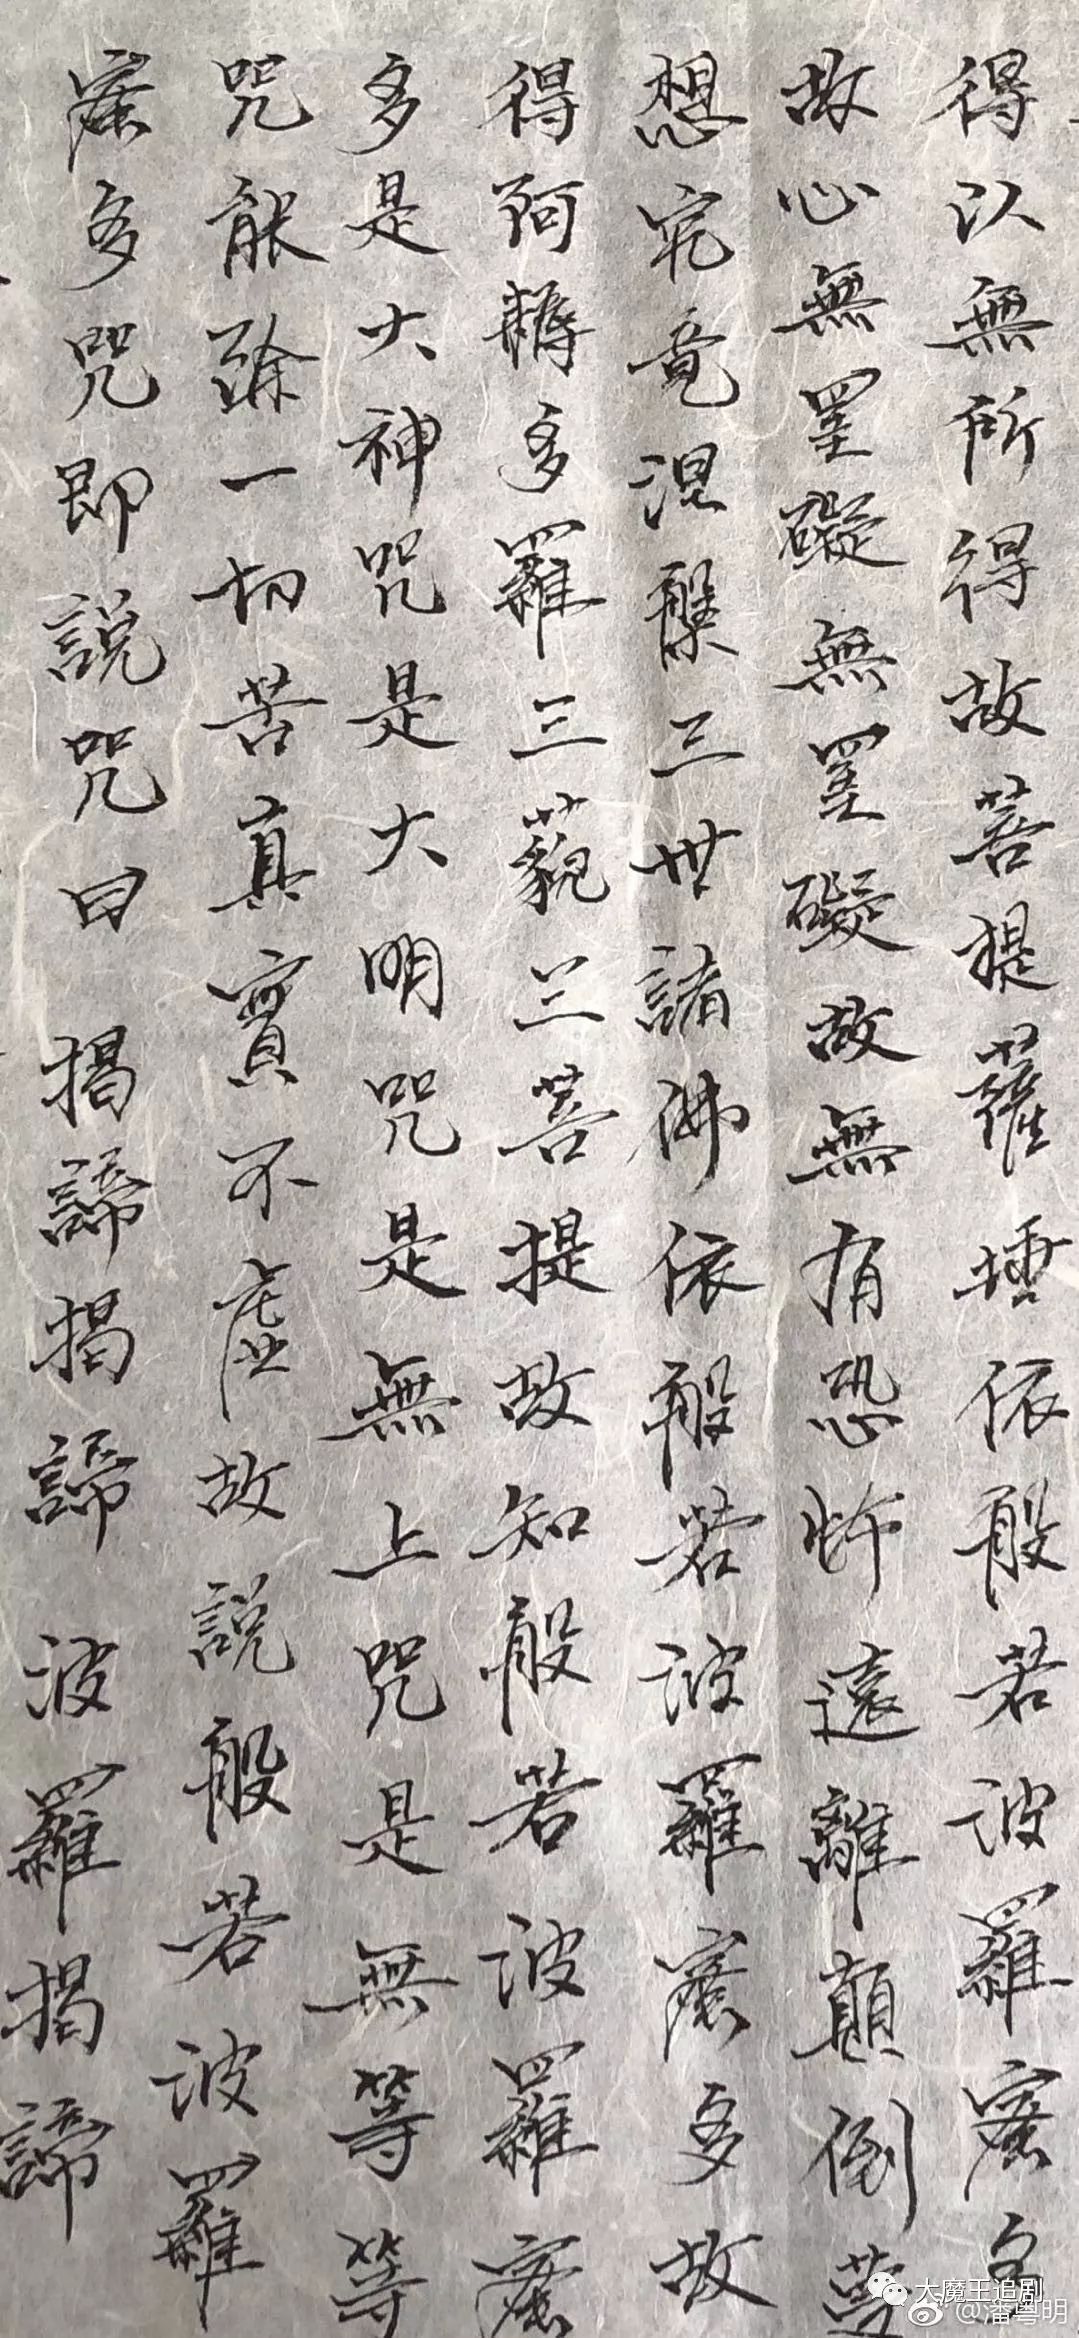 得以無所得故菩提薩埵依般若波羅蜜多
故心無罣礙無罣礙故無有恐怖遠離顛倒夢
想究竟涅槃三世諸佛依般若波羅蜜多故
得阿耨多羅三藐三菩提故知般若波羅蜜
多是大神咒是大明咒是無上咒是無等等
咒能除一切苦真實不虛故說般若波羅
蜜多咒即說咒曰 揭諦揭諦 波羅揭諦
大魔王追剧
@潘粤明